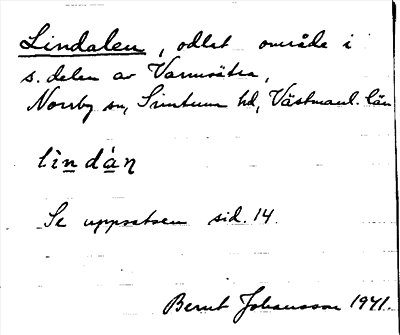 Lindalen, odlat område i
s. delen av Varmsätra,
Norrby sn, Simtuna hd, Västmanl. län
lìndàn
Se uppsatsen sid. 14.
Bernt Johansson 1941.